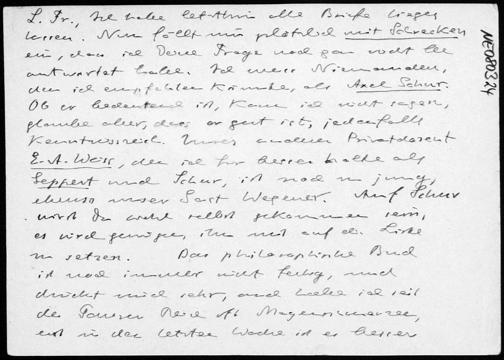 L. Fr., Ich habe letzthin alle Briefe liegen
lassen. Nun fällt mir plötzlich mit Schrecken
ein, dass ich Deine Frage noch gar nicht be
antwortet habe. Ich weiss Niemanden,
den ich empfehlen könnte, als Axel Schur.
Ob er bedeutend ist, kann ich nicht sagen,
glaube aber, dass er gut ist, jedenfalls
kenntnisreich. Unser anderer Privatdozent
E. A. Weiss, den ich für besser halte als
Seppert und Schur, ist noch zu jung,
ebenso unser Gast Wegener. Auf Schur
wirst Du wohl selbst gekommen sein,
es wird genügen, ihn mit auf die Liste
zu setzen. Das philosophische Buch
ist noch immer nicht fertig, und
drückt mich sehr, auch habe ich seit
der Reise oft Magenschmerzen,
erst in der letzten Woche ist es besser
NE080324